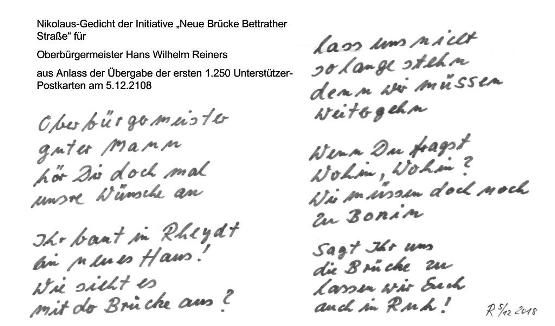 Nikolaus-Gedicht der Initiative „Neue Brücke Bettrather
Straße“ für
Oberbürgermeister Hans Wilhelm Reiners
aus Anlass der Übergabe der ersten 1.250 Unterstützer-
Postkarten am 5.12.2108
Oberbürgermeister
guter Mann
hör Dir doch mal
unsre Wünsche an
Ihr baut in Rheydt
ein neues Haus!
Wie sieht es
mit do Brücke aus?
lass uns nicht
so lange stehn
denn wir müssen
weitergehn
Wenn Du fragst
Wohin, Wohin?
Wir müssen doch noch
zu Bonin
Sagt Ihr uns
die Brücke zu
lassen wir Euch
auch in Ruh!
R 5/12 2018